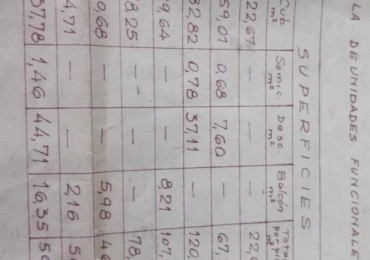 LA DE UNIDADES FUNCIONALE
SUPERFICIES
Cub. m² Semic. m² Desc. m² Balcón m² Total por piso m²
22,67 — — — 22,6
59,07 0,68 7,60 — 67,
82,82 0,78 37,11 — 120,
9,64 — — 8,21 107,
8,25 — — — 78,
0,68 — — 5,98 46
4,71 — — 2,16 5
37,78 1,46 44,71 16,35 50